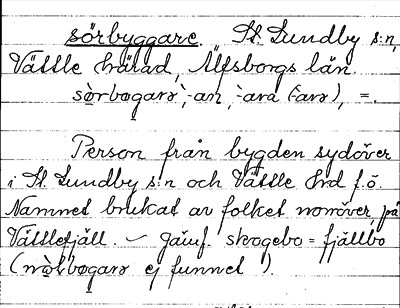 sörbyggare. St. Lundby s:n,
Vättle härad, Älfsborgs län.
sörbogarə, -an, -ara (-arə), =.
Person från bygden sydöver
i St. Lundby s:n och Vättle hrd f.ö.
Namnet brukat av folket norröver, på
Vättlefjäll. – Jämf. skogebo = fjällbo
(nörbogarə ej funnet).